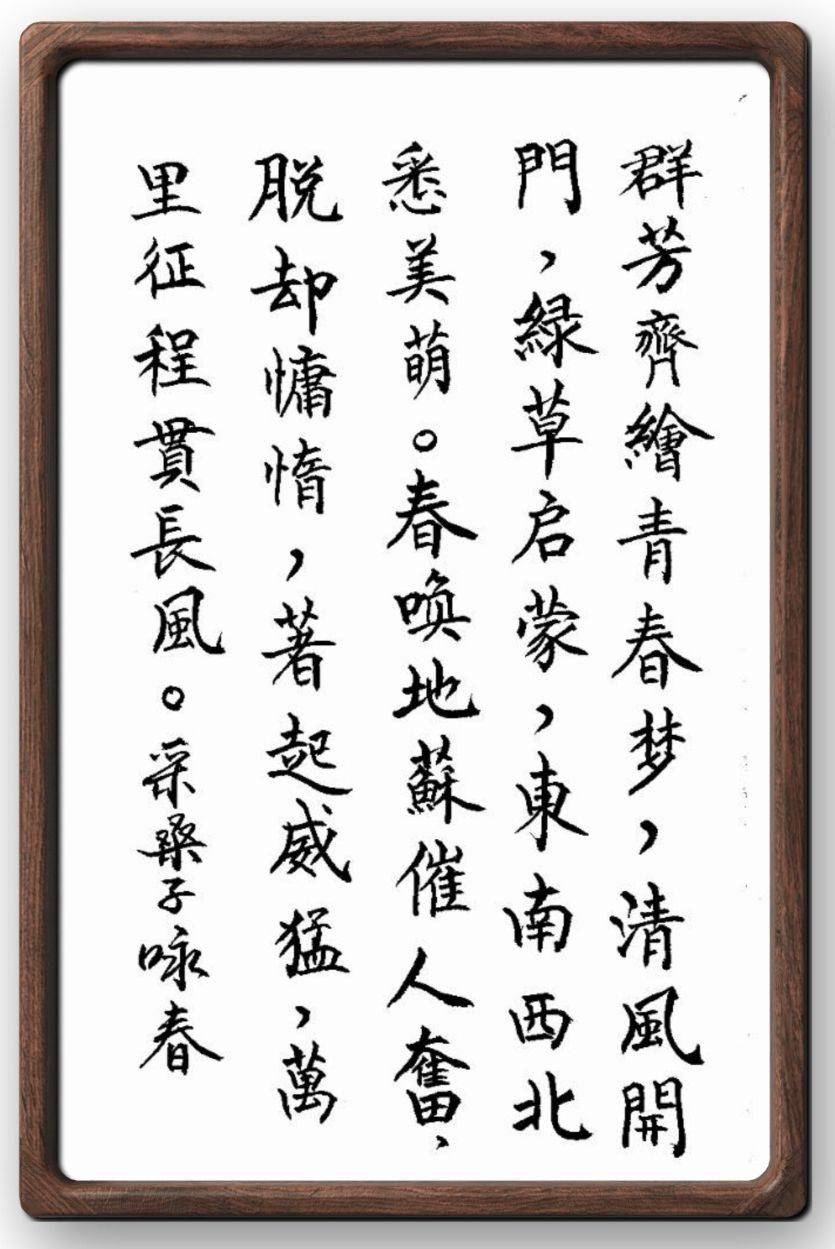 群芳齊繪青春梦，清風開
門，緑草启蒙，東南西北
悉美萌。春唤地蘇催人奮，
脱却慵惰，著起威猛，萬
里征程貫長風。采桑子咏春